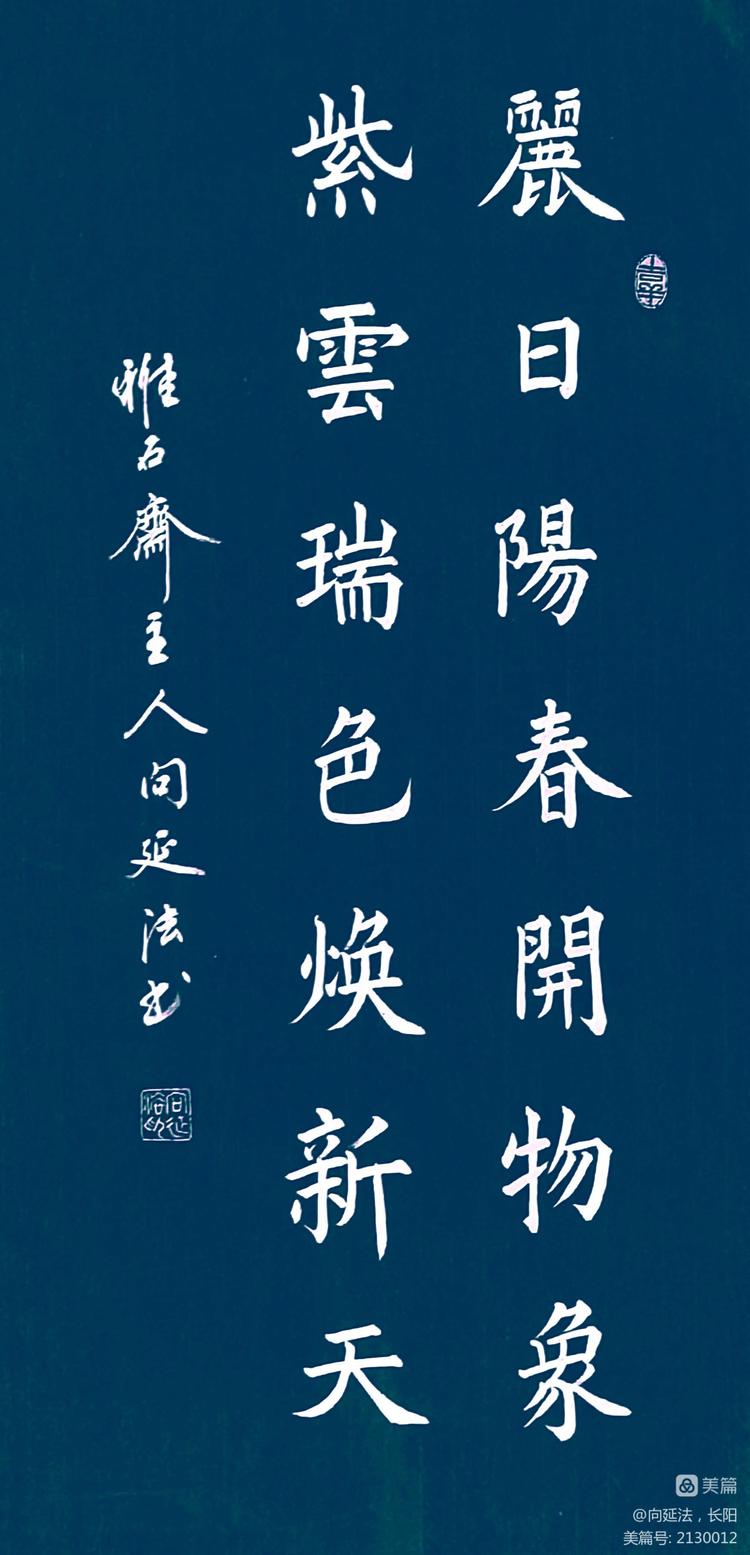 麗日陽春開物象
紫雲瑞色煥新天
雅石齋主人向延法书
美篇
@向延法，长阳
美篇号: 2130012